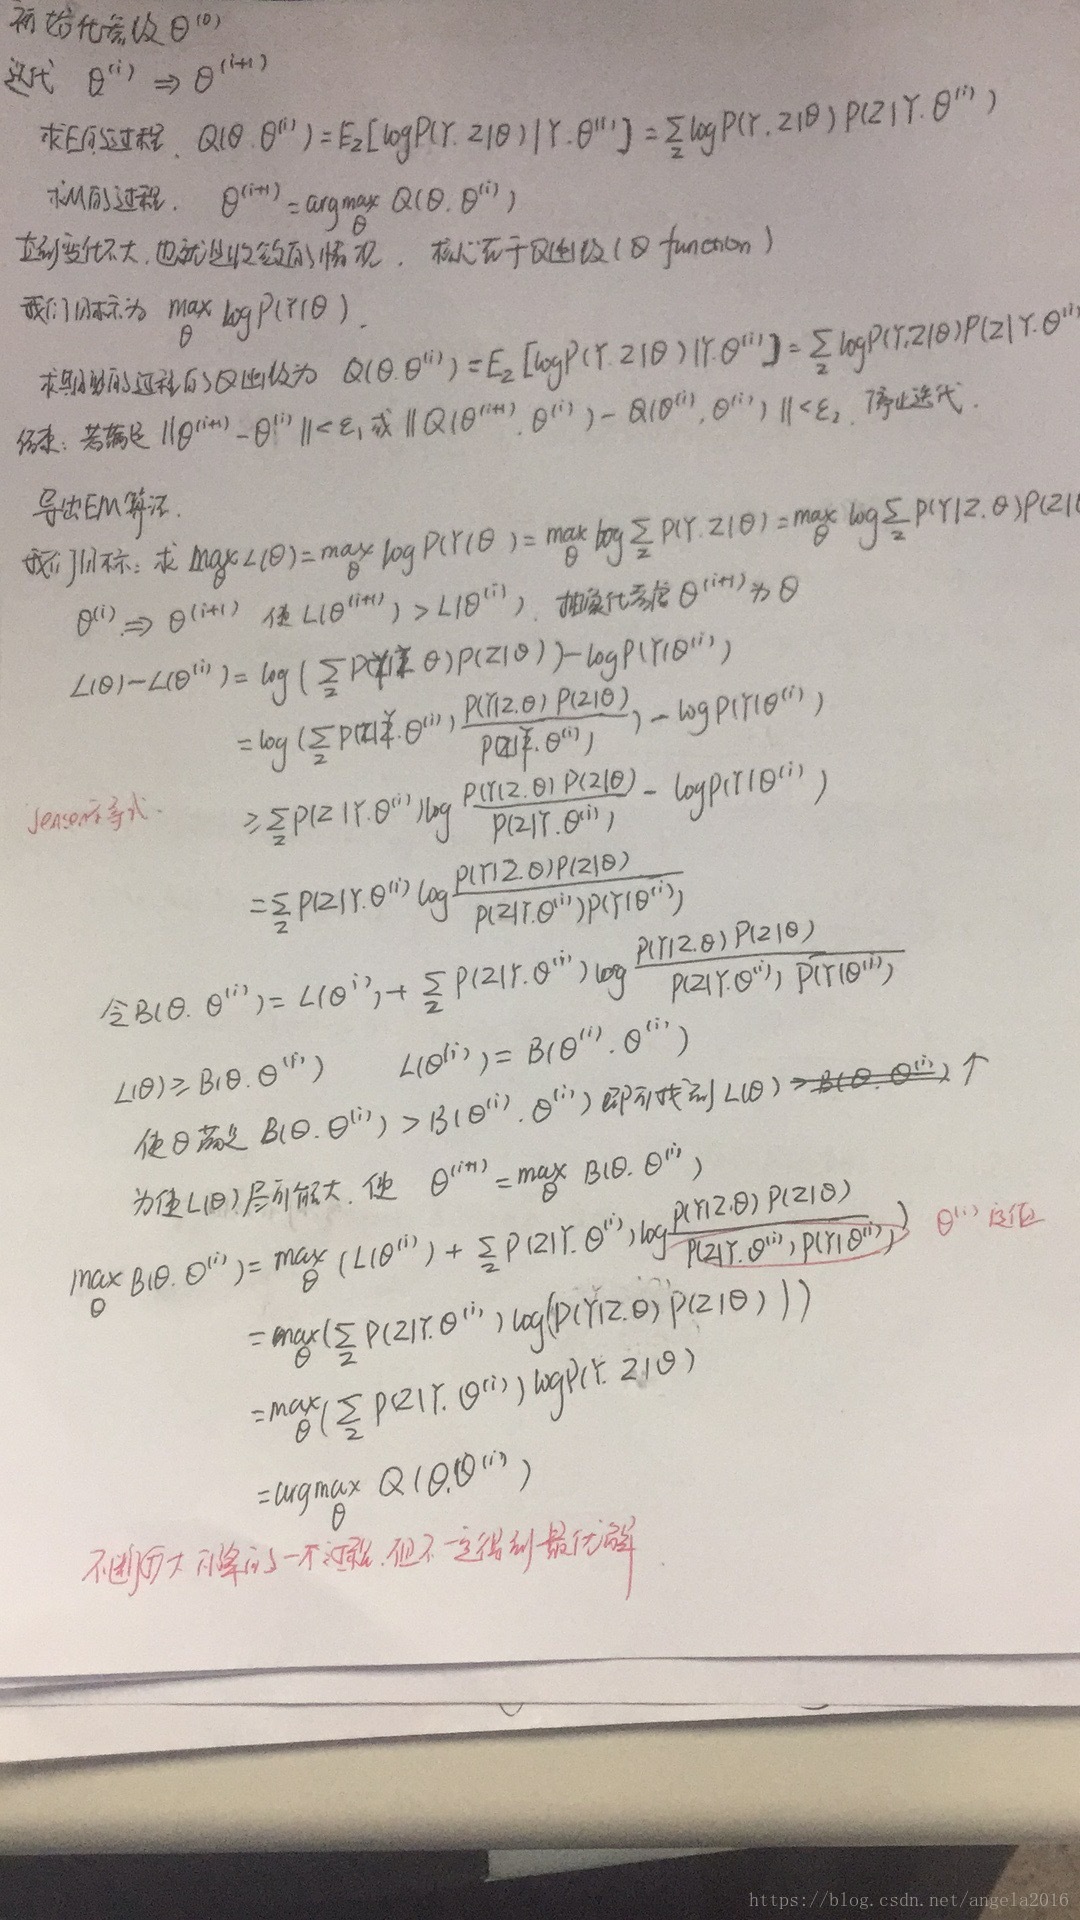 初始化参数θ^(0)
迭代 θ^(i) ⇒ θ^(i+1)
求E的过程. Q(θ.θ^(i)) = E_Z[logP(Y.Z|θ)|Y.θ^(i)] = Σ_Z logP(Y.Z|θ)P(Z|Y.θ^(i))
求M的过程. θ^(i+1) = argmax_θ Q(θ.θ^(i))
直到变化不大.也就是收敛的情况. 核心在于Q函数(Q function)
我们目标为 max_θ logP(Y|θ).
求期望的过程的Q函数为 Q(θ.θ^(i)) = E_Z[logP(Y.Z|θ)|Y.θ^(i)] = Σ_Z logP(Y,Z|θ)P(Z|Y.θ^(i)
结束: 若满足 ||θ^(i+1) - θ^(i)|| < ε₁ 或 ||Q(θ^(i+1).θ^(i)) - Q(θ^(i).θ^(i))|| < ε₂. 停止迭代.
导出EM算法.
我们目标: 求 max_θ L(θ) = max_θ logP(Y|θ) = max_θ log Σ_Z P(Y.Z|θ) = max_θ log Σ_Z P(Y|Z.θ)P(Z|
θ^(i) ⇒ θ^(i+1) 使 L(θ^(i+1)) > L(θ^(i)). θ^(i+1)为θ
L(θ) - L(θ^(i)) = log(Σ_Z P(Y|Z.θ)P(Z|θ)) - logP(Y|θ^(i))
= log(Σ_Z P(Z|Y.θ^(i)) P(Y|Z.θ)P(Z|θ) / P(Z|Y.θ^(i))) - logP(Y|θ^(i))
Jensen不等式.
≥ Σ_Z P(Z|Y.θ^(i)) log P(Y|Z.θ)P(Z|θ) / P(Z|Y.θ^(i)) - logP(Y|θ^(i))
= Σ_Z P(Z|Y.θ^(i)) log P(Y|Z.θ)P(Z|θ) / P(Z|Y.θ^(i))P(Y|θ^(i))
令B(θ.θ^(i)) = L(θ^i) + Σ_Z P(Z|Y.θ^(i)) log P(Y|Z.θ)P(Z|θ) / P(Z|Y.θ^(i))P(Y|θ^(i))
L(θ) ≥ B(θ.θ^(i)) L(θ^(i)) = B(θ^(i).θ^(i))
使θ满足 B(θ.θ^(i)) > B(θ^(i).θ^(i)) 即可找到L(θ) ≥ B(θ.θ^(i)) ↑
为使L(θ)尽可能大. 使 θ^(i+1) = max_θ B(θ.θ^(i))
max_θ B(θ.θ^(i)) = max_θ (L(θ^(i)) + Σ_Z P(Z|Y.θ^(i)) log P(Y|Z.θ)P(Z|θ) / P(Z|Y.θ^(i))P(Y|θ^(i))) θ^(i)
= max_θ(Σ_Z P(Z|Y.θ^(i)) log(P(Y|Z.θ)P(Z|θ)))
= max_θ(Σ_Z P(Z|Y.θ^(i)) logP(Y.Z|θ)
= argmax_θ Q(θ.θ^(i))
不断的一个过程.但不一定得到最优解.
https://blog.csdn.net/angela2016